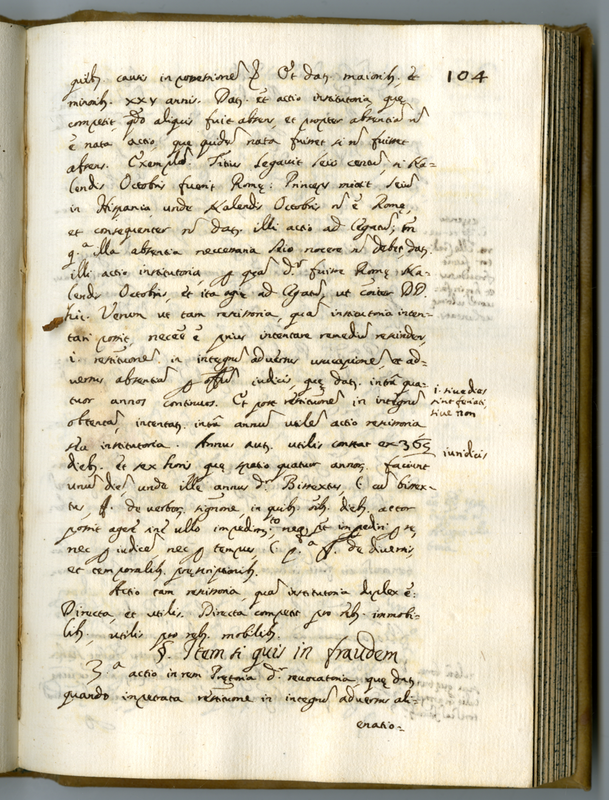 104
quib, causis in possessione Et dat, maiorib, et
minorib, xxv annis. Dat, et actio institutoria que
competit, qdo aliquis fuit absens, et propter absentia no
e nata actio, que quide nata fuisset si no fuisset
absens. Exemplo Titius legavit Seio centu, si Ka=
lendis Octobris fuerit Rome: Princeps misit Seiu
in Hispania unde Kalendis Octobris no e Rome,
et consequenter no dat, illi actio ad legatu, tn
q.a illa absentia neccessaria Seio nocere no debet, dat,
illi actio institutoria, p qua d.r fuisse Rome Ka=
lendis Octobris, et ita agit ad legatu, ut coiter DD.
hic. Verum ut tam resissoria, qua institutoria inten=
tari possit, necesse e prius intentare remediu rescindens
i. restitutione in integru adversus usucapione, et ad=
versus absentia p offitiu iudicis, que dat, intra qua=
tuor annos continuos. Et post restitutione in integru
obtenta, intentat, intra annu utile actio resissoria
seu institutoria. Annus aut, utilis constat ex 365
dieb, et sex horis, que spatio quatuor annor, faciunt
unu die, unde ille annus d.r Bissextus, l. cu bisex=
tus, ff. de verbor, signione, in quib, sib, dieb, actor
possit agere sine ullo impedim.to neq, sit impedit, p se,
nec p iudice, nec p tempus l. p.a ff. de diversis
et temporalib, prescriptionib,
Actio tam resissoria, qua institutoria duplex e:
Directa, et utilis. Directa competit pro reb, immobi=
lib, utilis pro reb, mobilib,
§. Item si quis in fraudem
3.a actio in rem Pretoria d.r revocatoria, que dat,
quando impetrata restitutione in integru adversus ali=
enatio=
i. sive dies
sint feriati,
sive non
iuridicis